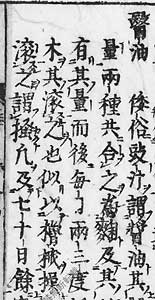 醤油 倭俗豉汁謂醤油其
量兩種共合之為麹及其
有其量而後每日兩三度
木其滾之也似以㯭攪操
滾之謂搔凡及七十日餘